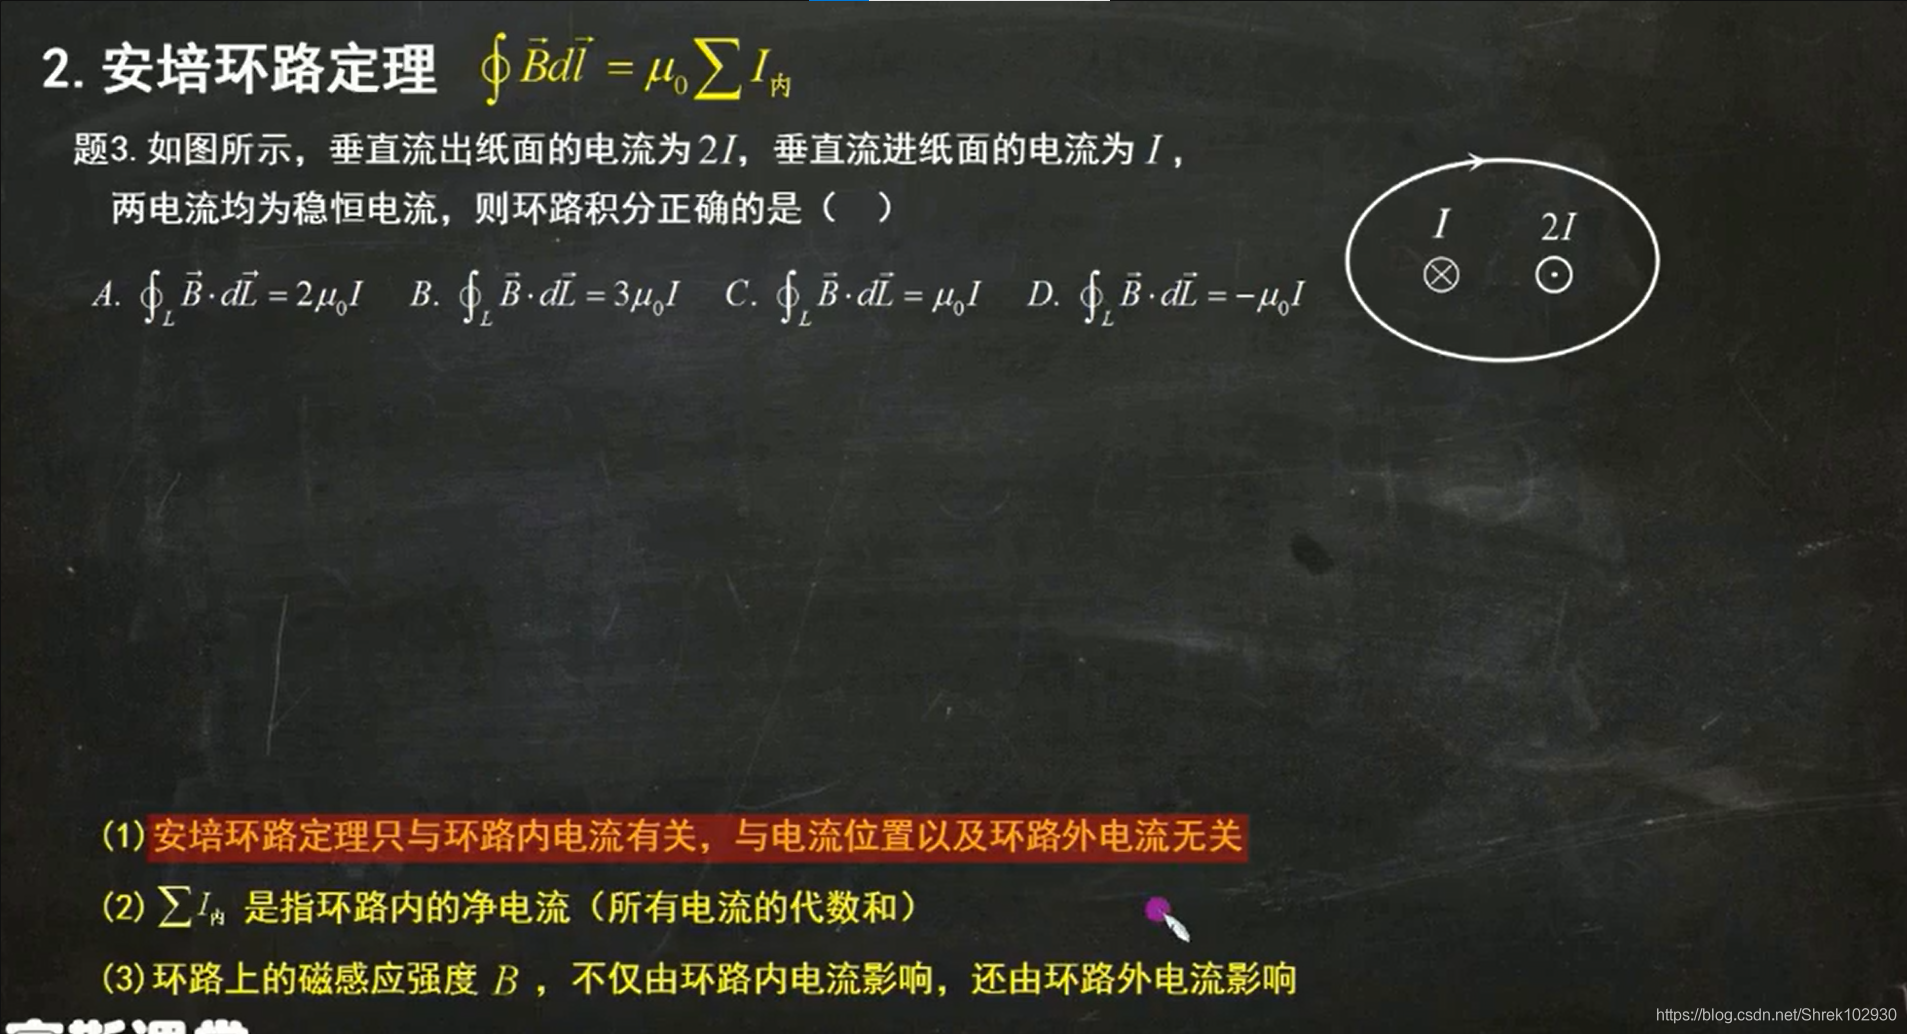 2. 安培环路定理 ∮B⃗dl⃗ = μ₀∑I内
题3. 如图所示，垂直流出纸面的电流为2I，垂直流进纸面的电流为I，
两电流均为稳恒电流，则环路积分正确的是（ ）
A. ∮_L B⃗·dL⃗ = 2μ₀I B. ∮_L B⃗·dL⃗ = 3μ₀I C. ∮_L B⃗·dL⃗ = μ₀I D. ∮_L B⃗·dL⃗ = −μ₀I
I 2I
(1) 安培环路定理只与环路内电流有关，与电流位置以及环路外电流无关
(2) ∑I内 是指环路内的净电流（所有电流的代数和）
(3) 环路上的磁感应强度 B ，不仅由环路内电流影响，还由环路外电流影响
https://blog.csdn.net/Shrek102930